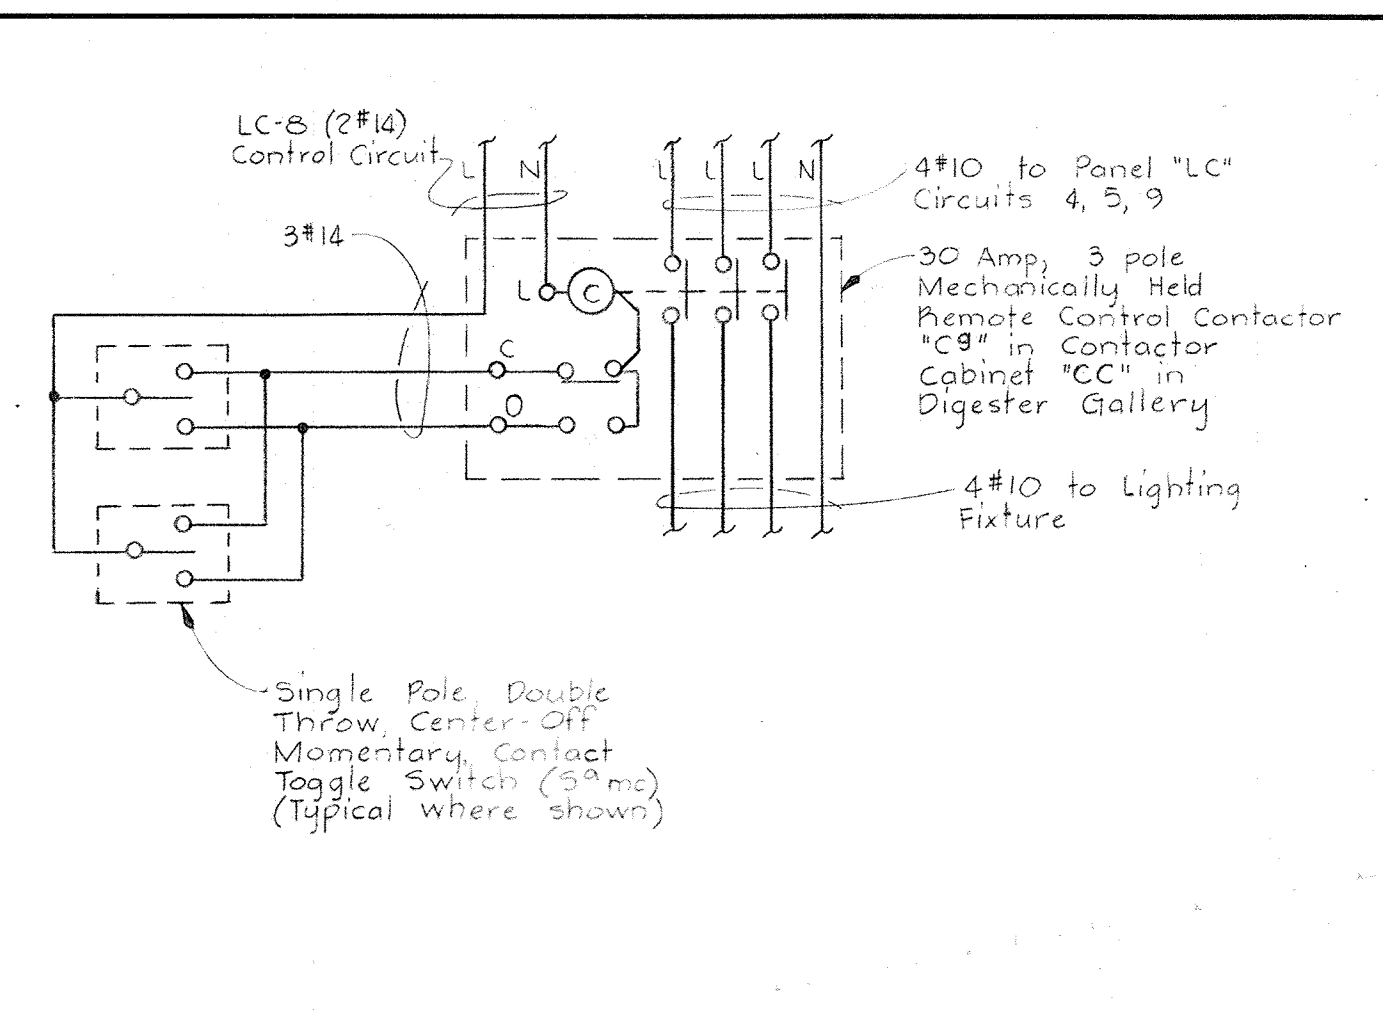 LC-8 (2#14)
Control Circuit
L
N
L
L
L
N
4#10 to Panel "LC"
Circuits 4, 5, 9
3#14
30 Amp, 3 pole
Mechanically Held
Remote Control Contactor
"C9" in Contactor
Cabinet "CC" in
Digester Gallery
L
C
C
O
4#10 to Lighting
Fixture
Single Pole, Double
Throw, Center-Off
Momentary, Contact
Toggle Switch (S⁹mc)
(Typical where shown)